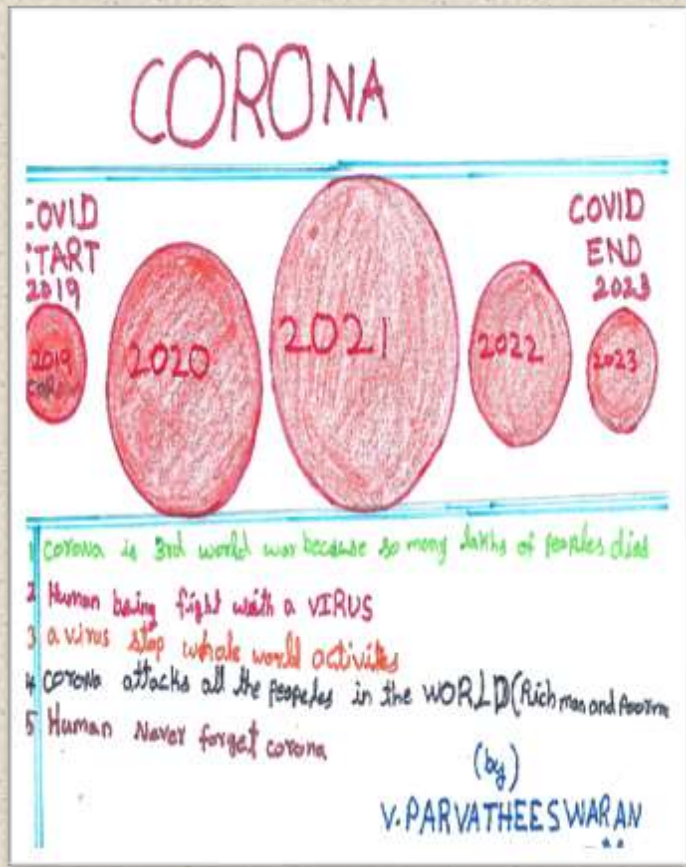 CORONA
COVID
START
2019
COVID
END
2023
2019
2020
2021
2022
2023
1 corona is 3rd world war because so many lakhs of peoples dies
2 Human being fight with a VIRUS
3 a virus stop whole world activites
4 corona attacks all the peopeles in the WORLD (Rich man and Poorm
5 Human Never forget corona
(by)
V. PARVATHEESWARAN